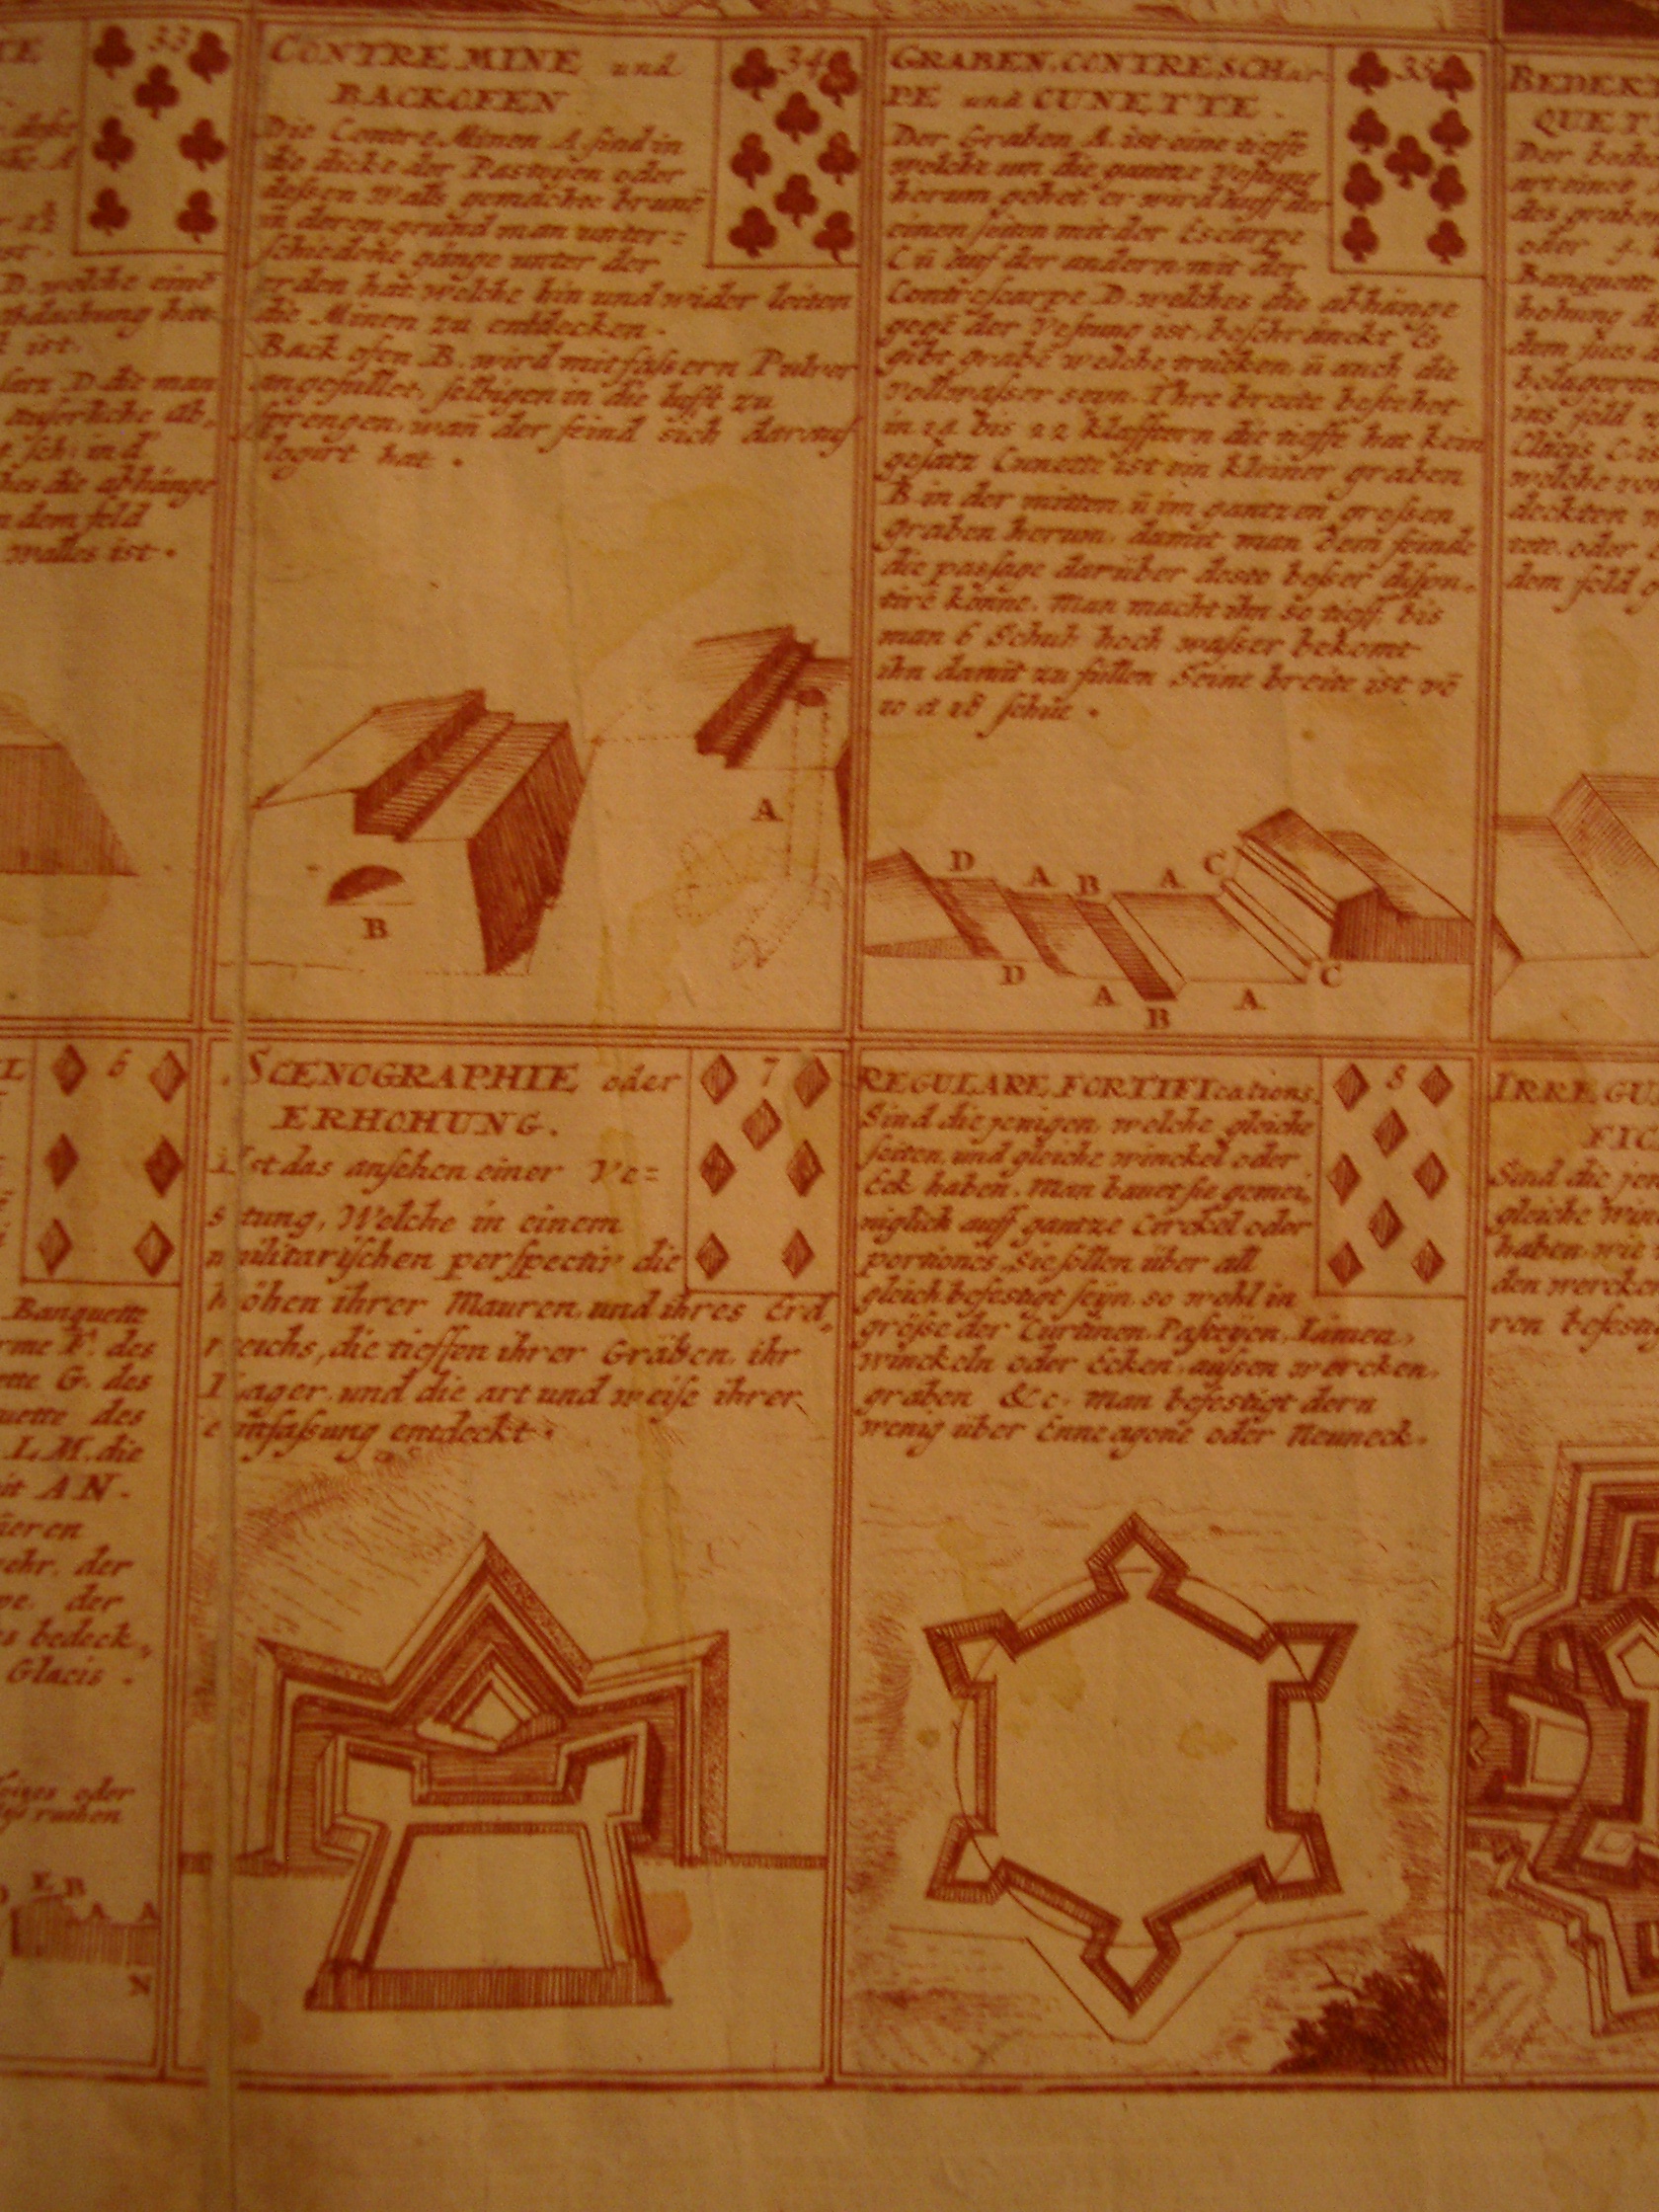 TE
33
D. welche eine
ist.
D. die man
euserliche ab,
sch: ind
hes die abhänge
dem feld
walles ist.
CONTRE MINE und
BACKOFEN
34
Die Contre Minen A. sind in
die dicke der Pasteyen oder
dessen walls gemachte brunē
in deren grund man unter=
schiedene gänge unter der
erden hat, welche hin und wider leiten
die Minen zu entdecken.
Back ofen B. wird mit fässern Pulver
angefüllet, selbigen in die lufft zu
sprengen, wan der feind sich darauf
logirt hat.
A
B
GRABEN, CONTRESCHar-
PE und CUNETTE.
35
Der Graben A. ist eine tieffe
welche um die gantze Vestung
herum gehet, er wird auff der
einen seiten mit der Escarpe
C ū auf der andern mit der
Contrescarpe D. welches die abhänge
gegē der Vestung ist, beschränckt Es
gibt grabē welche trücken, ū auch die
voll wasser seyn. Ihre breite bestehet
in 18 bis 22 Klafftern die tieffe hat kein
gesatz Cunette ist ein kleiner graben
B in der mitten, ū im gantzen grossen
graben herum, damit man dem feinde
die passage darüber desto besser dispu-
tirē könne. Man macht ihn so tieff, bis
man 6 Schuh hoch wasser bekomt
ihn damit zu füllen Seine breite ist vō
schue.
D A B A C
D A B A C
BEDEKT
QUET
Der bede
art einet
des graben
oder
Banquette
hohung
dem fues
belagerun
ins feld
Glacis C. is
welche vo
deckten
oder
dem feld
6
Banquette
F. des
G. des
des
L M. die
A N.
der
der
bedeck,,
Glacis.
oder
ruthen
E B
A A
N
SCENOGRAPHIE oder
ERHOHUNG.
7
Ist das ansehen einer Ve=
stung, Welche in einem
militarischen perspectiv die
höhen ihrer Mauren, und ihres Erd,,
reichs, die tieffen ihrer Gräben, ihr
Lager, und die art und weise ihrer
einfassung entdeckt.
REGULARE FORTIFIcations.
8
Sind die jenigen, welche gleiche
seiten, und gleiche winckel oder
Eck haben. Man bauet sie gemei,,
niglich auff gantze Circkel oder
portiones, sie sollen über all
gleich befestigt seyn, so wohl in
grösse der Curtinen, Pasteyen, Linien,
winckeln oder Ecken, aussen wercken,
graben &c. Man befestigt dern
wenig über Enneagone oder Neuneck.
IRREGU
FIC
Sind die jen
gleiche win
haben, wie
den wercken
ren befestig